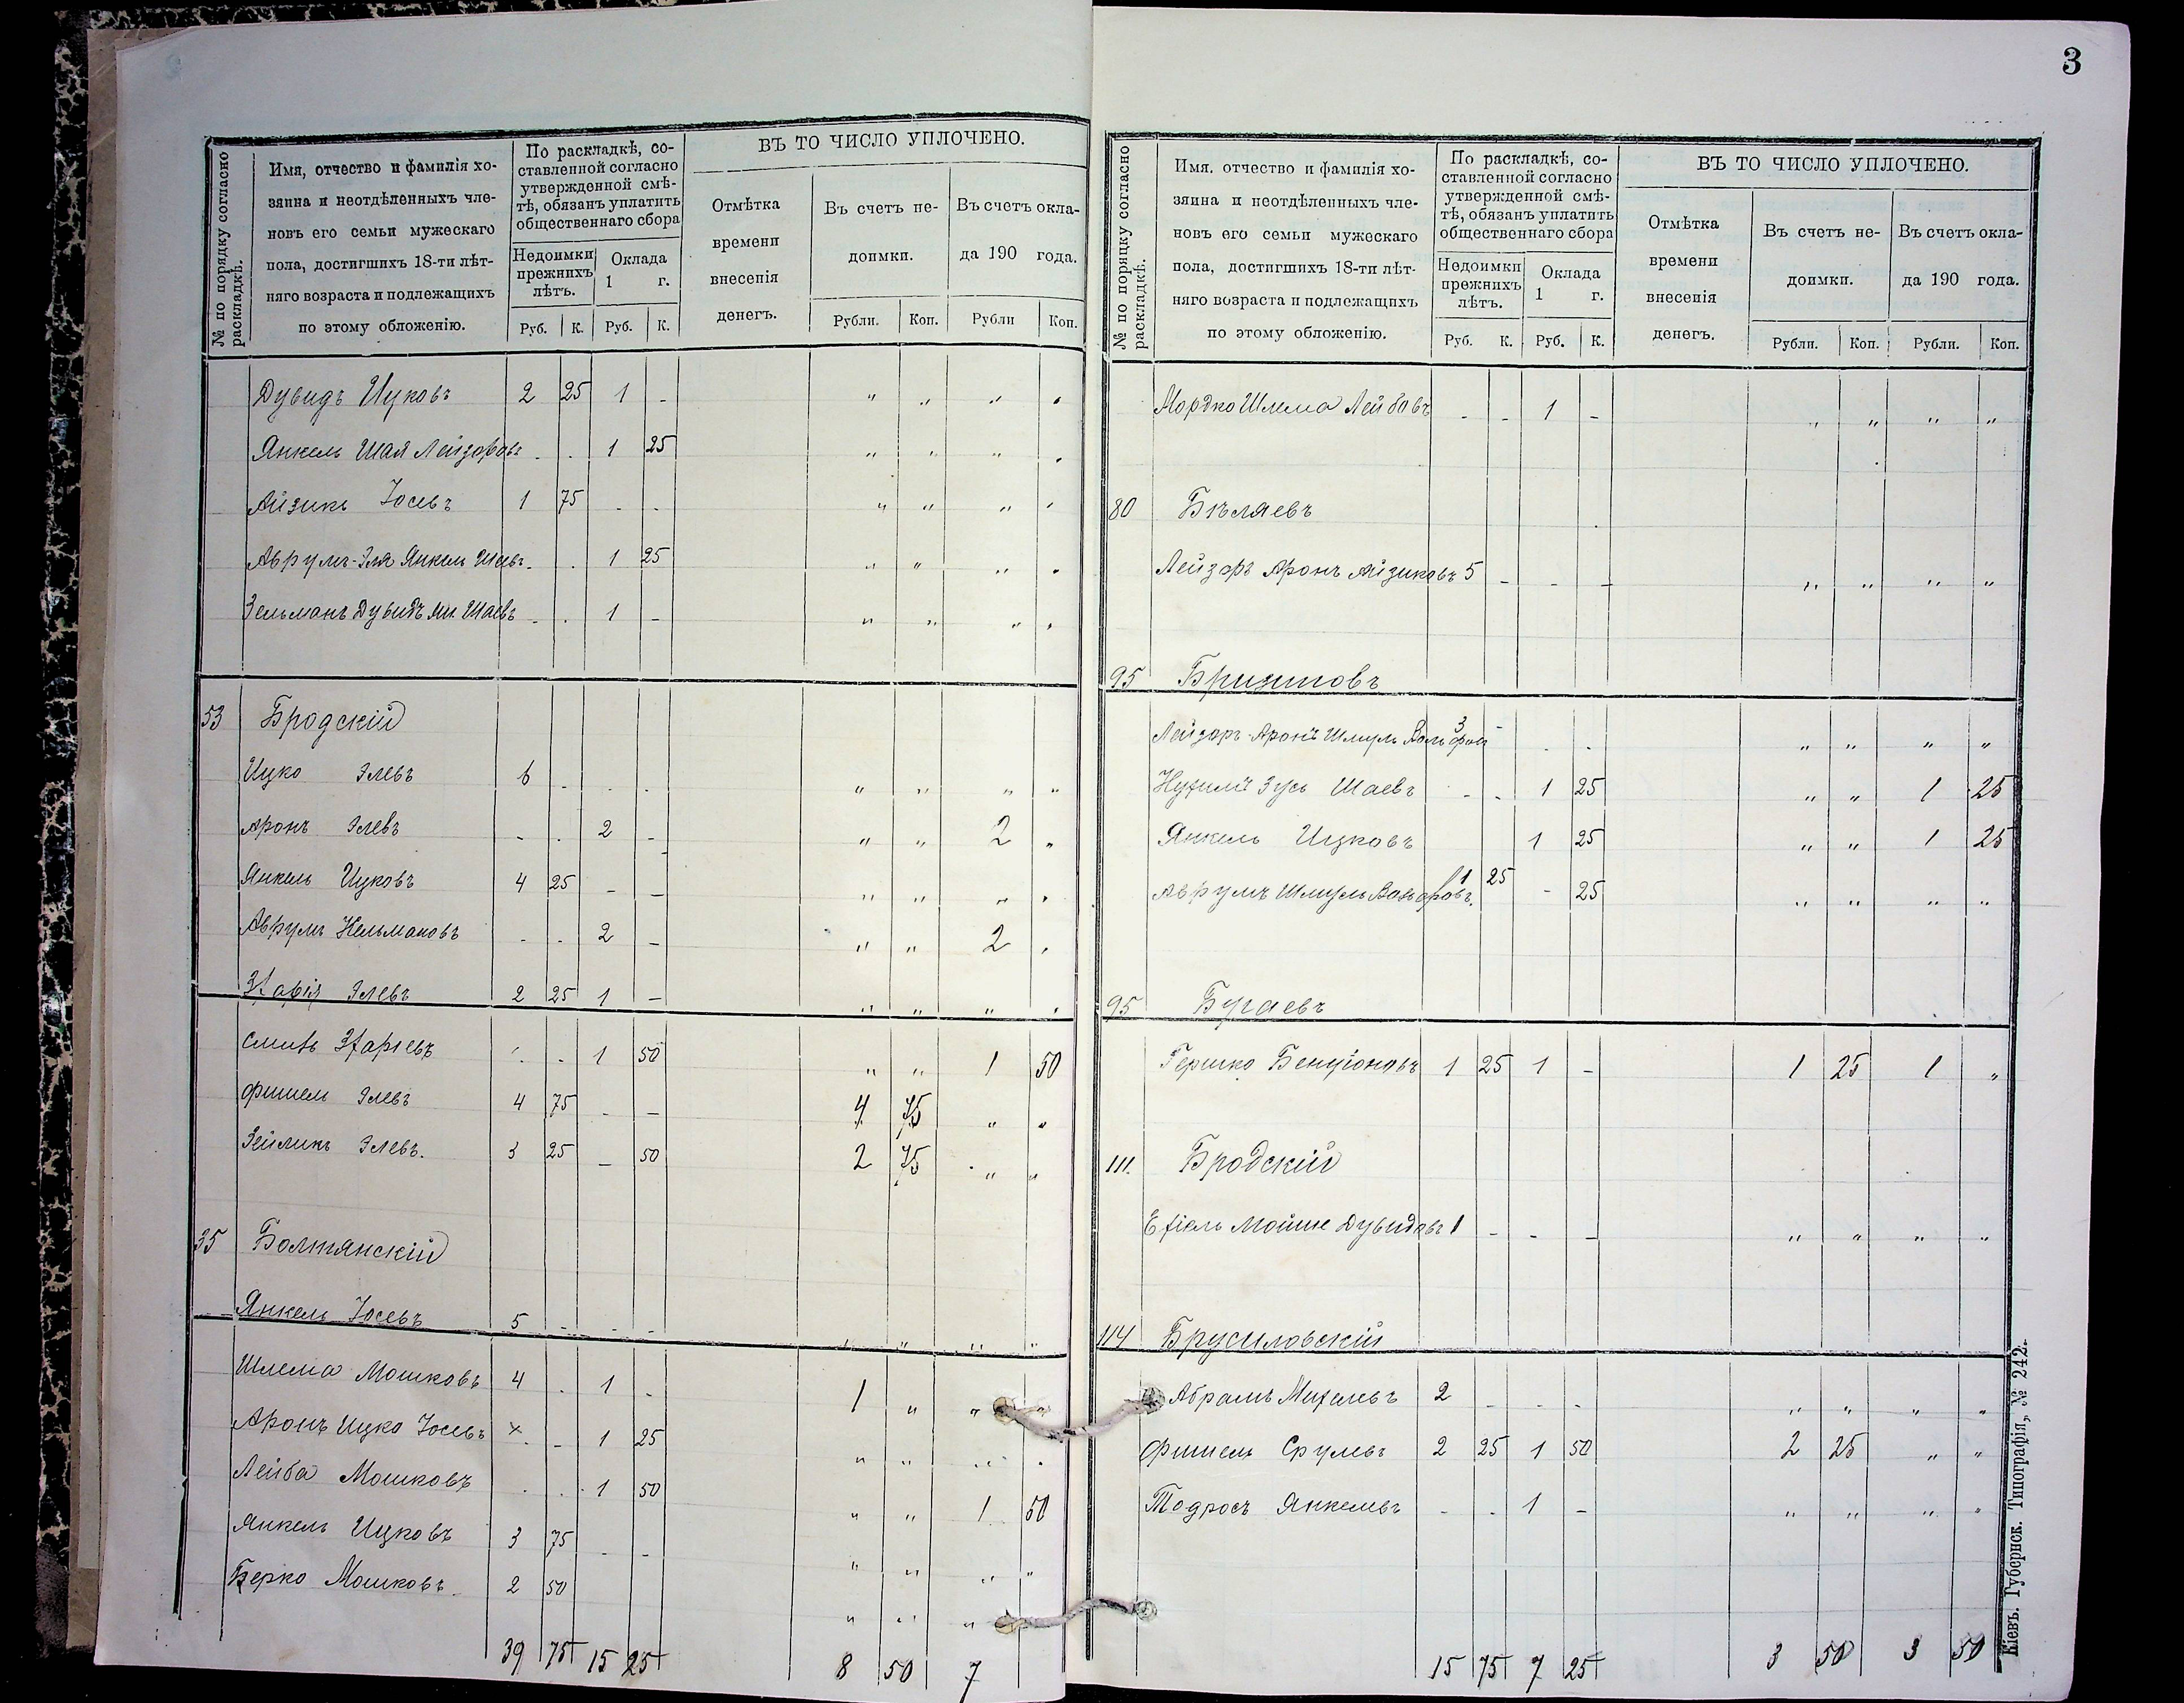 3
№ по порядку согласно раскладкѣ.
Имя, отчество и фамилія хо-
зяина и неотдѣленныхъ чле-
новъ его семьи мужескаго
пола, достигшихъ 18-ти лѣт-
няго возраста и подлежащихъ
по этому обложенію.
По раскладкѣ, со-
ставленной согласно
утвержденной смѣ-
тѣ, обязанъ уплатить
общественнаго сбора
Недоимки
прежнихъ
лѣтъ.
Оклада
1 г.
Руб. К. Руб. К.
ВЪ ТО ЧИСЛО УПЛОЧЕНО.
Отмѣтка
времени
внесенія
денегъ.
Въ счетъ не-
доимки.
Въ счетъ окла-
да 190 года.
Рубли. Коп. Рубли Коп.
Дувидъ Ицковъ 2 25 1 - " " " "
Янкель Шая Лейзоровъ - - 1 25 " " " "
Айзикъ Іосевъ 1 75 - - " " " "
Аврумъ-Эля Янкель Шаевъ - - 1 25 " " " "
Зельманъ Дувидъ Ян. Шаевъ - - 1 - " " " "
53 Бродскій
Ицко Элевъ 6 - - - " " " "
Аронъ Элевъ - - 2 - " " 2 "
Янкель Ицковъ 4 25 - - " " " "
Аврумъ Нельмановъ - - 2 - " " 2 "
Элевъ 2 25 1 - " " " "
- - 1 50 " " 1 50
Фишель Элевъ 4 75 - - 4 75 " "
Зейликъ Элевъ. 3 25 - 50 2 75 " "
35 Болтянскій
Янкель Іосевъ 5 - - - " " " "
Шлема Мошковъ 4 - 1 - 1 " " "
Аронъ Ицко Іосевъ × - - 1 25 " " " "
Лейба Мошковъ - - 1 50 " " 1 50
Янкель Ицковъ 3 75 - - " " " "
Берко Мошковъ 2 50 " " " "
39 75 15 25 8 50 7
№ по порядку согласно раскладкѣ.
Имя, отчество и фамилія хо-
зяина и неотдѣленныхъ чле-
новъ его семьи мужескаго
пола, достигшихъ 18-ти лѣт-
няго возраста и подлежащихъ
по этому обложенію.
По раскладкѣ, со-
ставленной согласно
утвержденной смѣ-
тѣ, обязанъ уплатить
общественнаго сбора
Недоимки
прежнихъ
лѣтъ.
Оклада
1 г.
Руб. К. Руб. К.
ВЪ ТО ЧИСЛО УПЛОЧЕНО.
Отмѣтка
времени
внесенія
денегъ.
Въ счетъ не-
доимки.
Въ счетъ окла-
да 190 года.
Рубли. Коп. Рубли. Коп.
Мордко Шлема Лейбовъ - - 1 - " " " "
80 Бѣляевъ
Лейзоръ Аронъ Айзиковъ 5 - - - " " " "
95
Лейзоръ-Аронъ Шмуль 3 - - - " " " "
Зусь Шаевъ - - 1 25 " " 1 25
Янкель Ицковъ 1 25 " " 1 25
Аврумъ Шмуль 1 25 - 25 " " " "
95 Бугаевъ
Гершко Бенціоновъ 1 25 1 - 1 25 1 "
111. Бродскій
Мойше Дувидовъ 1 - - - " " " "
114 Брусиловскій
Абрамъ 2 - - - " " " "
Фишель Срулевъ 2 25 1 50 2 25 " "
Тодросъ Янкелевъ - - 1 - " " " "
15 75 7 25 3 50 3 50
Кіевъ. Губернск. Типографія, № 242.